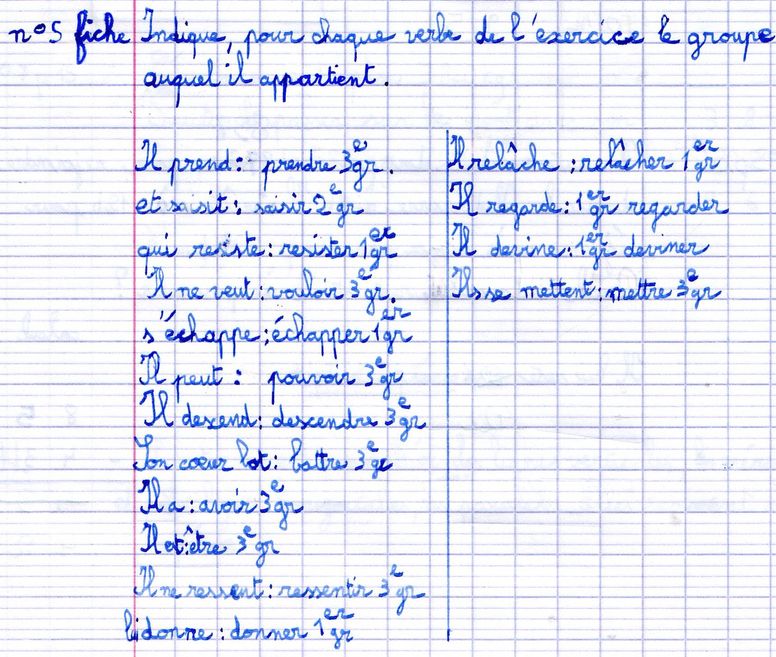 n°5 fiche Indique, pour chaque verbe de l'exercice le groupe
auquel il appartient.
Il prend : prendre 3e gr.
et saisit : saisir 2e gr
qui resiste : resister 1er gr
Il ne veut : vouloir 3e gr.
s'échappe : échapper 1er gr
Il peut : pouvoir 3e gr
Il descend : descendre 3e gr
Son coeur bat : battre 3e gr
Il a : avoir 3e gr
Il est : être 3e gr
Il ne ressent : ressentir 3e gr
lui donne : donner 1er gr
Il relâche : relâcher 1er gr
Il regarde : 1er gr regarder
Il devine : 1er gr deviner
Ils se mettent : mettre 3e gr